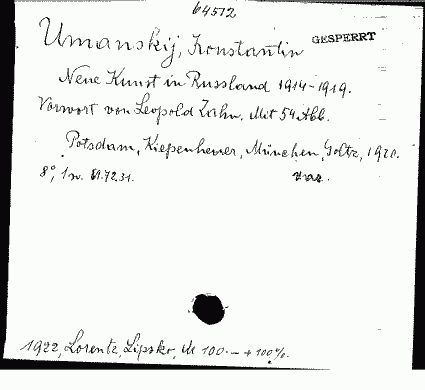 64512
Umanskij, Konstantin
GESPERRT
Neue Kunst in Russland 1914-1919.
Vorwort von Leopold Zahn. Mit 54 Abb.
Potsdam, Kiepenheuer, München, Goltz, 1920.
8°, 1 w. 61.7231.
1922, Lorentz, Lipsko, M 100.- + 100%.